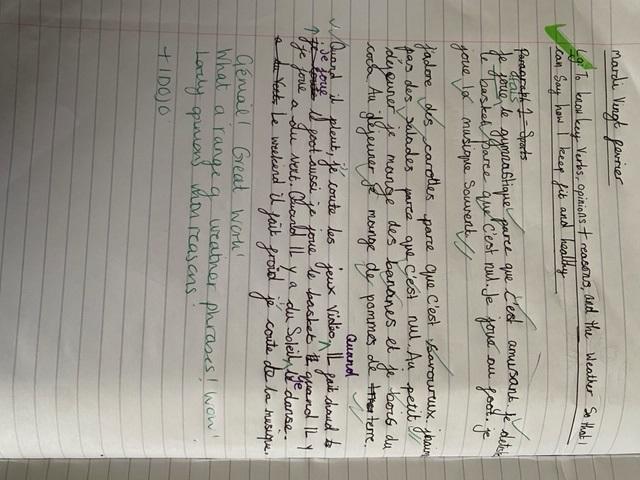 mardi Vingt fevrier
LO To know key Verbs, opinions + reasons, and the Weather So that I
can Say how I keep fit and healthy
Paragraph 1 - Sports
Je fais le gymnastique parce que c'est amusant. Je detest
le basket parce que c'est nul. Je joue au foot. je
joue la musique Souvent
j'adore des carottes parce que c'est savoureux. j'haim
pas des salades parce que c'est nul. Au petit
déjeuner je mange des bananes et je bois du
coca. Au déjeuner je mange de pommes de terre.
Quand
Quand il pleut, je coute les jeux Vidéo. IL fait chaud
je joue le foot aussi je joue le basket quand IL Y
je joue a du vent. Quand IL Y a du Soleil, je danse.
Le weekend il fait froid je coute de la musique.
Génial! Great Work!
What a range of weather phrases! Wow!
Lovely opinions and reasons!
+10DOJO